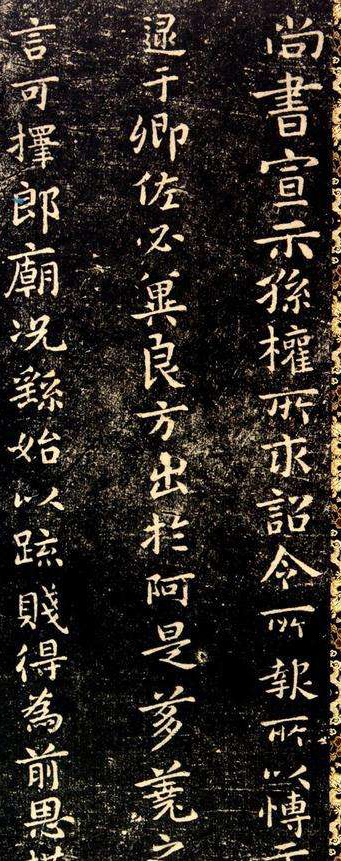 尚書宣示孫權所求詔令所報所以博示
逮于卿佐必冀良方出於阿是芻蕘之
言可擇郎廟況繇始以疏賤得為前恩